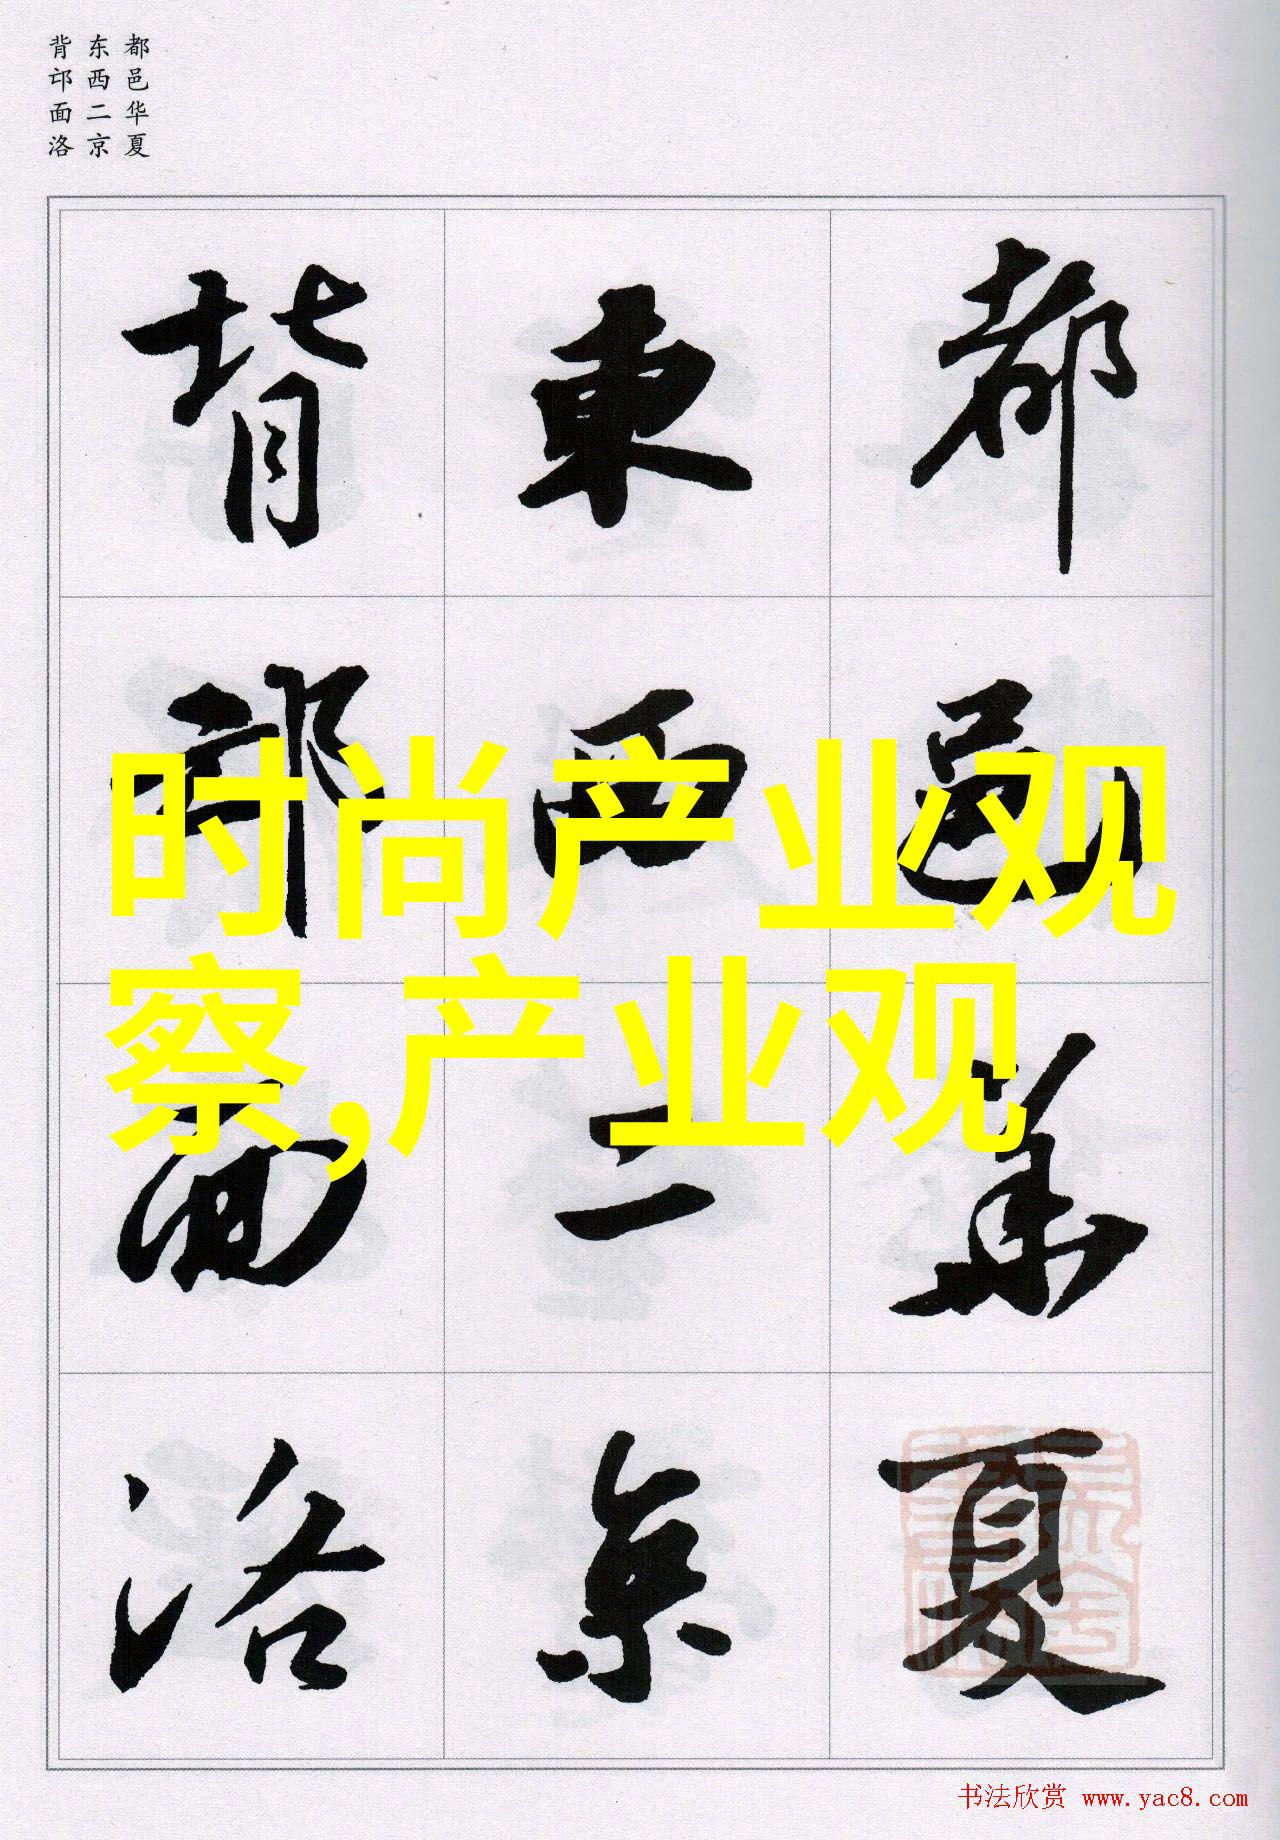 都邑华夏
东西二京
背邙面洛
都邑華夏
東西二京
背邙面洛
时尚产业观
察,产业观
书法欣赏 www.yac8.com